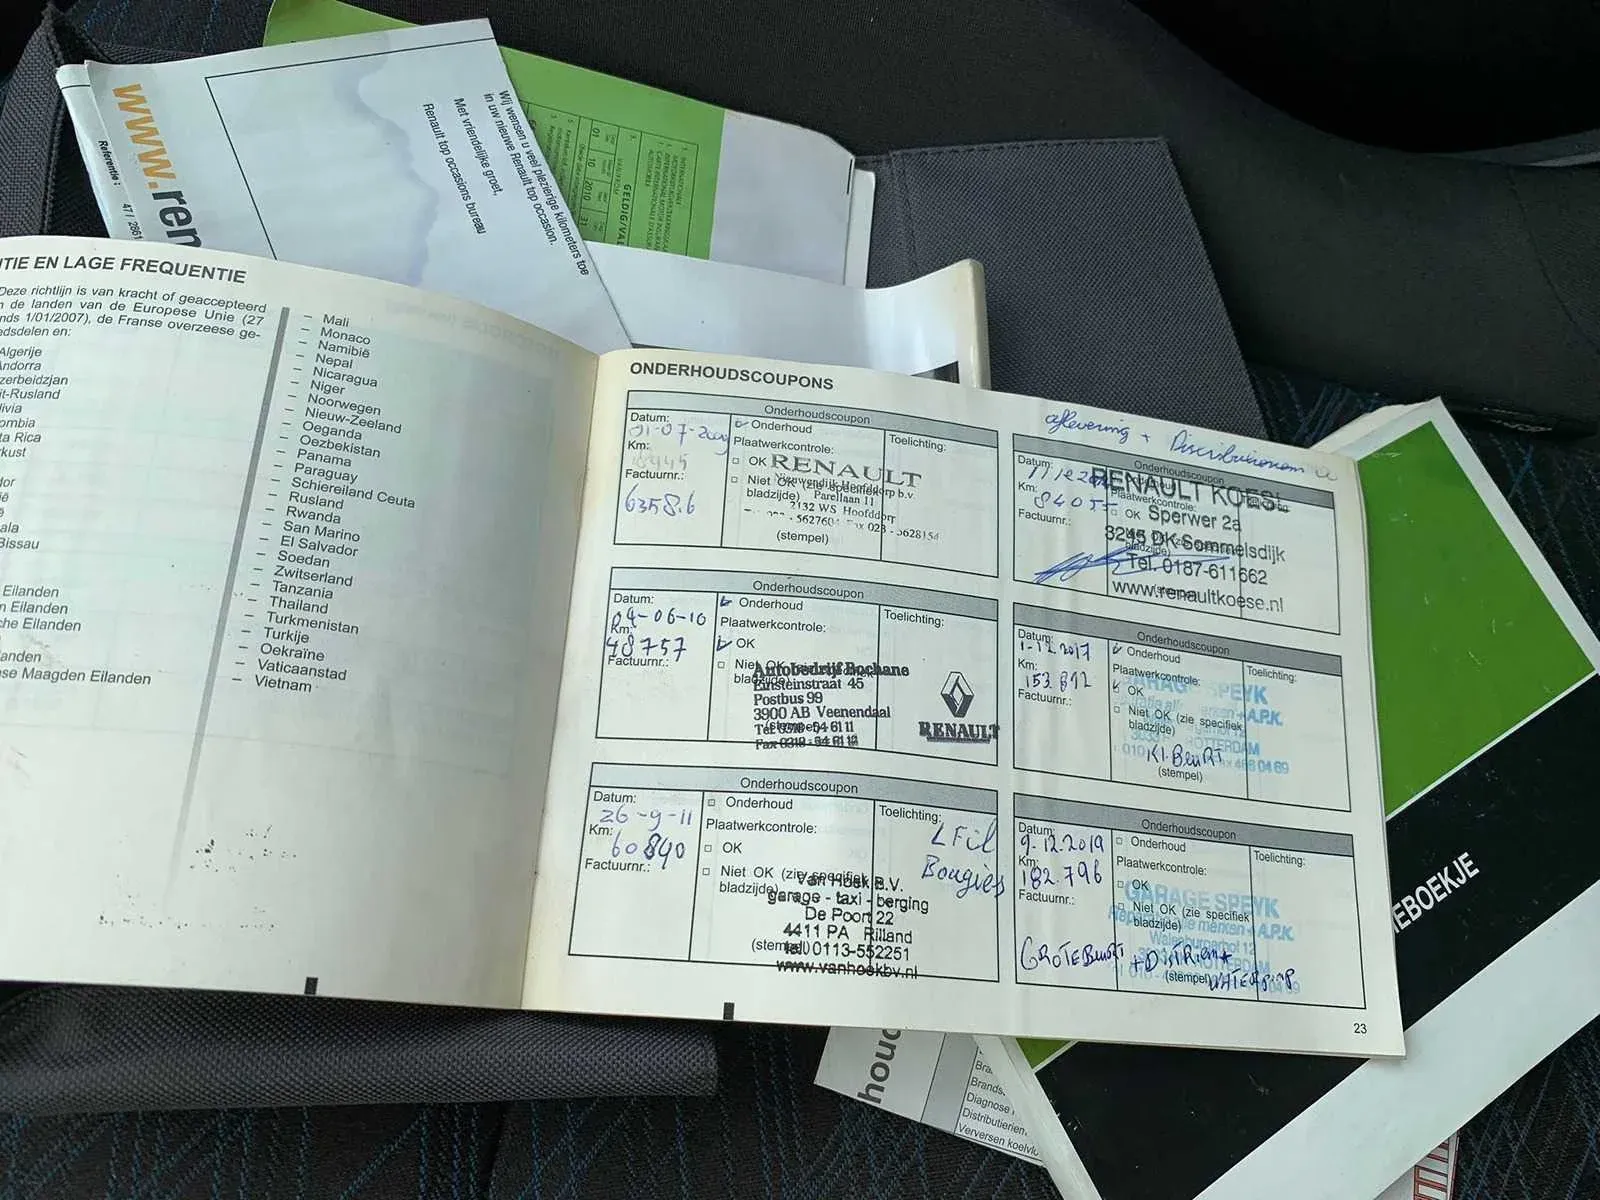 www.ren
Referentie :
47 / 2861
Wij wensen u veel plezierige kilometers toe
in uw nieuwe Renault top occasion.
Met vriendelijke groet,
Renault top occasions bureau
GELDIG/VAL
01 10 2010
TIE EN LAGE FREQUENTIE
Deze richtlijn is van kracht of geaccepteerd
n de landen van de Europese Unie (27
nds 1/01/2007), de Franse overzeese ge-
edsdelen en:
Algerije
Andorra
zerbeidzjan
it-Rusland
livia
ombia
ta Rica
rkust
dor
ië
ala
Bissau
Eilanden
n Eilanden
che Eilanden
anden
se Maagden Eilanden
– Mali
– Monaco
– Namibië
– Nepal
– Nicaragua
– Niger
– Noorwegen
– Nieuw-Zeeland
– Oeganda
– Oezbekistan
– Panama
– Paraguay
– Schiereiland Ceuta
– Rusland
– Rwanda
– San Marino
– El Salvador
– Soedan
– Zwitserland
– Tanzania
– Thailand
– Turkmenistan
– Turkije
– Oekraïne
– Vaticaanstad
– Vietnam
ONDERHOUDSCOUPONS
Onderhoudscoupon
Datum:
Km:
Factuurnr.:
6358.6
Onderhoud
Plaatwerkcontrole:
OK
Niet OK (zie specifiek
bladzijde)
(stempel)
Toelichting:
RENAULT
Nieuwendijk Hoofddorp b.v.
Parellaan 11
2132 WS Hoofddorp
Onderhoudscoupon
Datum:
04-06-10
Km:
48757
Factuurnr.:
Onderhoud
Plaatwerkcontrole:
OK
Niet OK
Toelichting:
Autobedrijf Bochane
Einsteinstraat 45
Postbus 99
3900 AB Veenendaal
RENAULT
Onderhoudscoupon
Datum:
26-9-11
Km:
60840
Factuurnr.:
Onderhoud
Plaatwerkcontrole:
OK
Niet OK (zie specifiek
bladzijde)
(stempel)
Toelichting:
Bougies
Van Hoek B.V.
garage - taxi - berging
De Poort 22
4411 PA Rilland
tel. 0113-552251
www.vanhoekbv.nl
aflevering +
Onderhoudscoupon
Datum:
Km:
Factuurnr.:
OK
RENAULT KOESE
Sperwer 2a
3245 DK Sommelsdijk
Tel. 0187-611662
www.renaultkoese.nl
Onderhoudscoupon
Datum:
1-12-2017
Km:
153.812
Factuurnr.:
Onderhoud
Plaatwerkcontrole:
OK
Niet OK (zie specifiek
bladzijde)
(stempel)
Toelichting:
GARAGE SPEYK
KL. BEURT
Onderhoudscoupon
Datum:
9-12-2019
Km:
182.796
Factuurnr.:
Onderhoud
Plaatwerkcontrole:
OK
Niet OK (zie specifiek
bladzijde)
(stempel)
Toelichting:
GARAGE SPEYK
GROTE BEURT + DISTRIEM +
WATERPOMP
23
IEBOEKJE
houd
Brands.
Diagnose
Distributierien
Verversen koelvlo